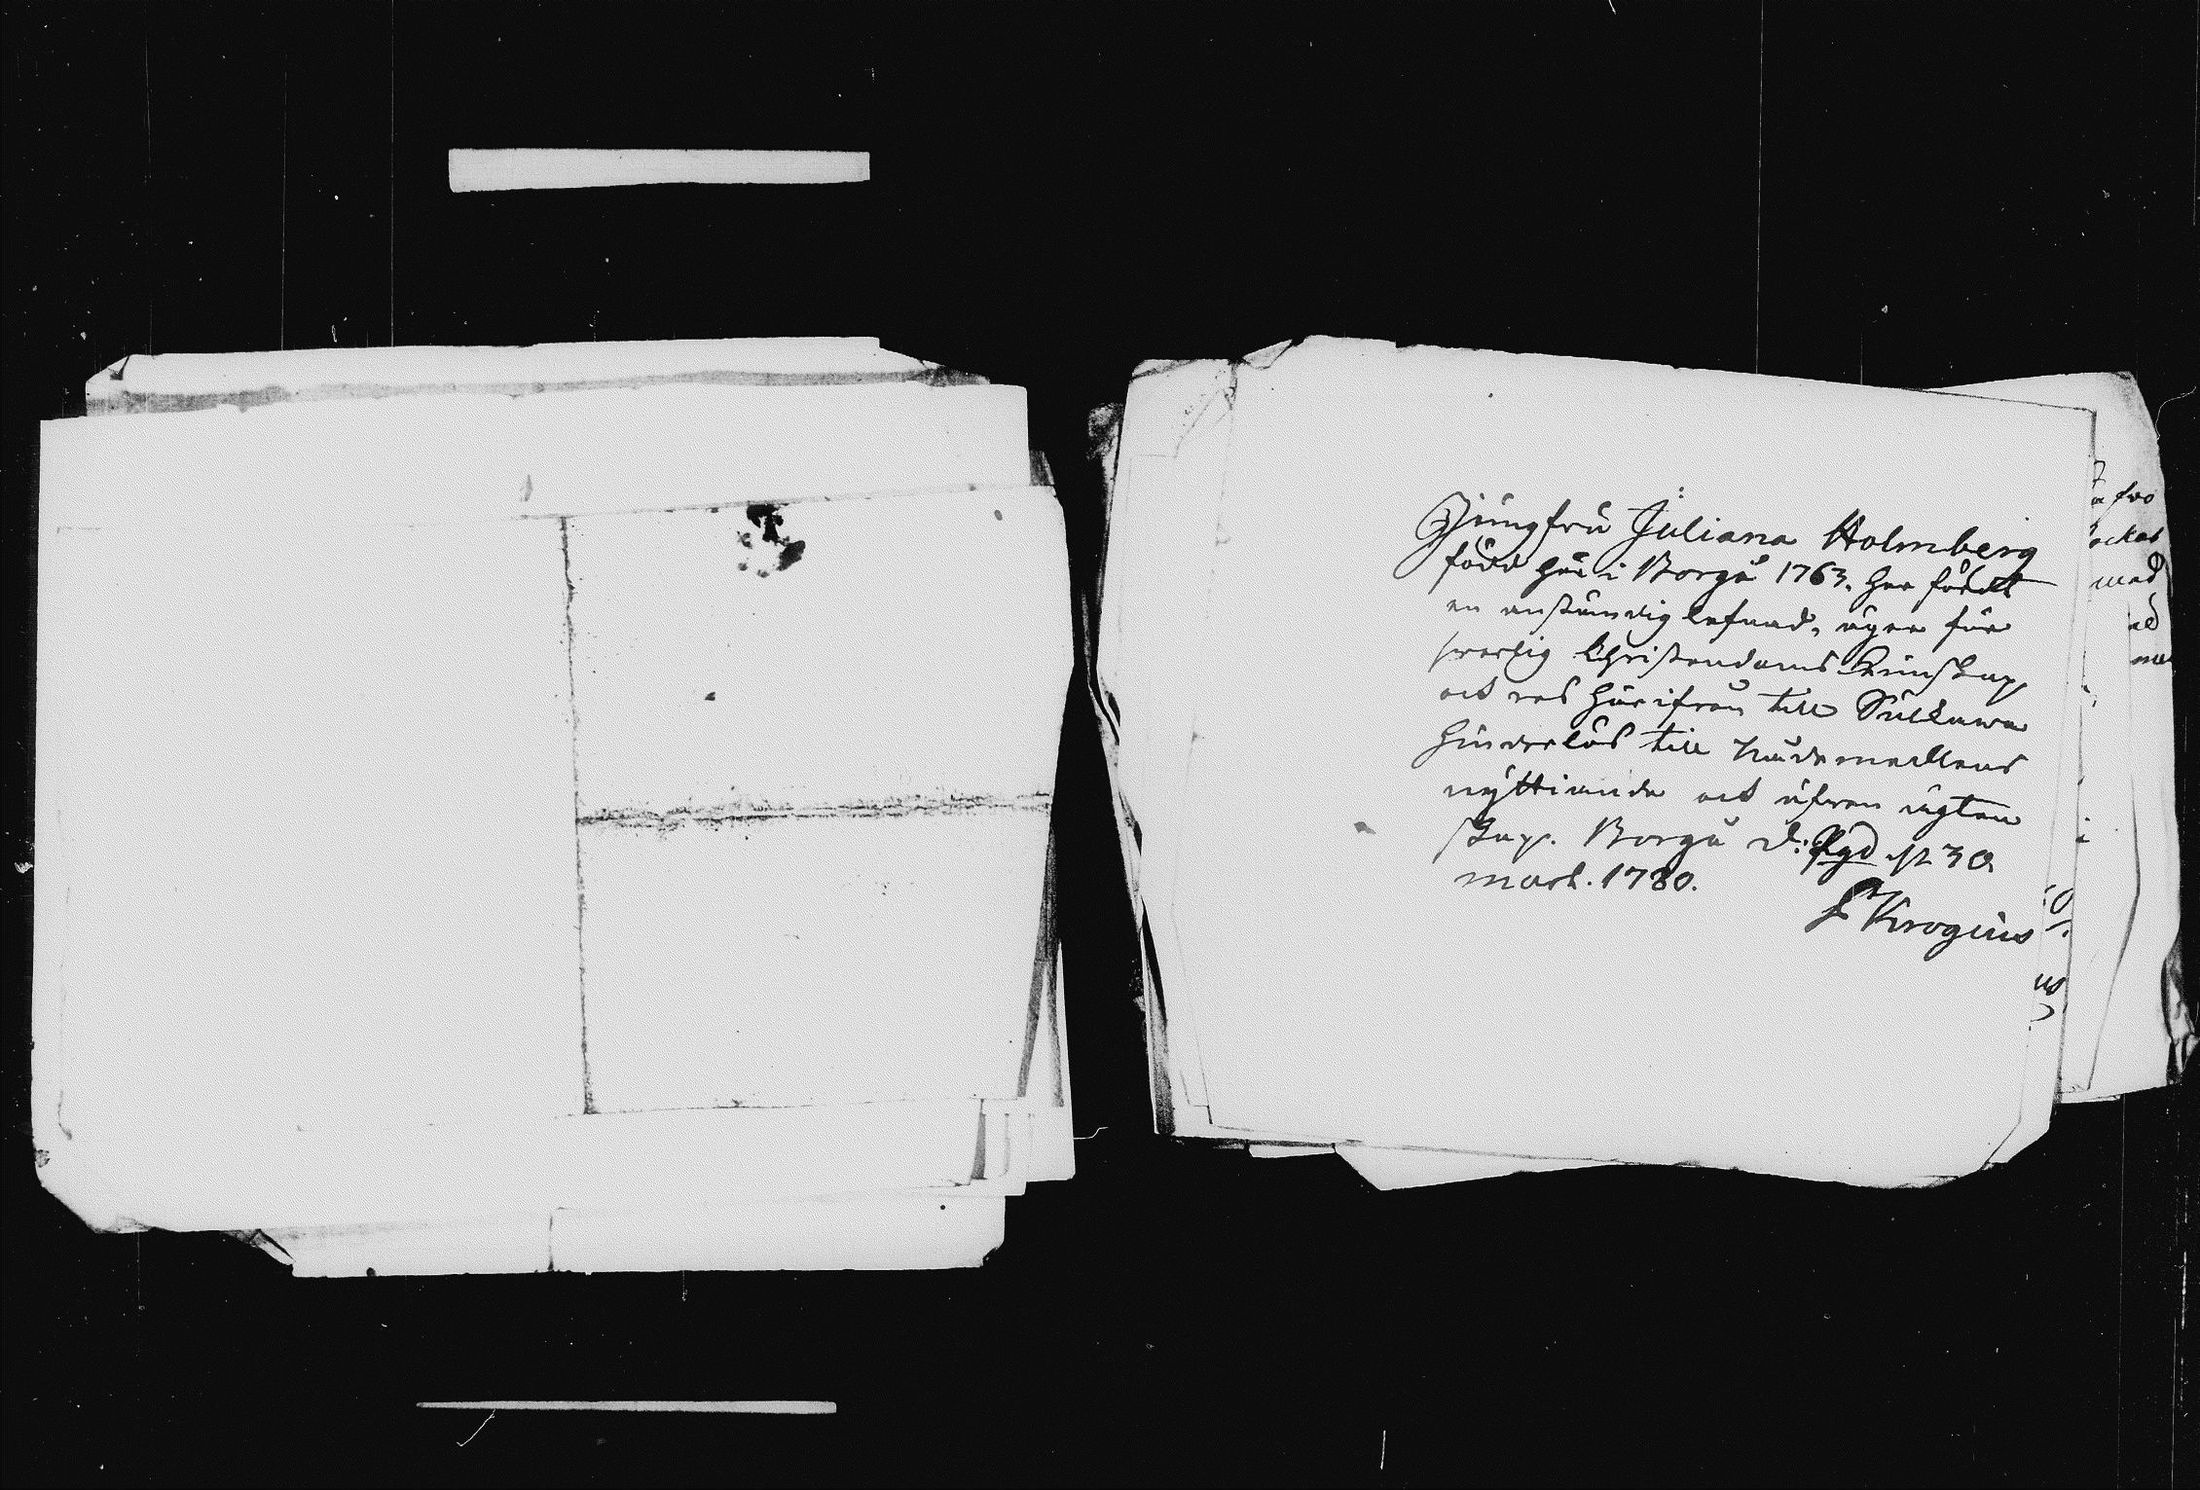 Jungfru Juliana Holmberg
född här i Borgå 1763. har fördt
en anständig lefnad, äger för
swarlig Christendoms kunskap,
och res härifrån till Sulkawa
hinderlös till Nådemedlens
nyttiande och äfwen ägten
skap. Borgå d. 30
mart. 1780.
Krogius